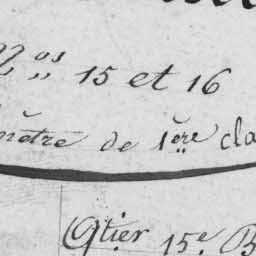 Nos 15 et 16
mètre de 1ère cla
Qtier 15e B